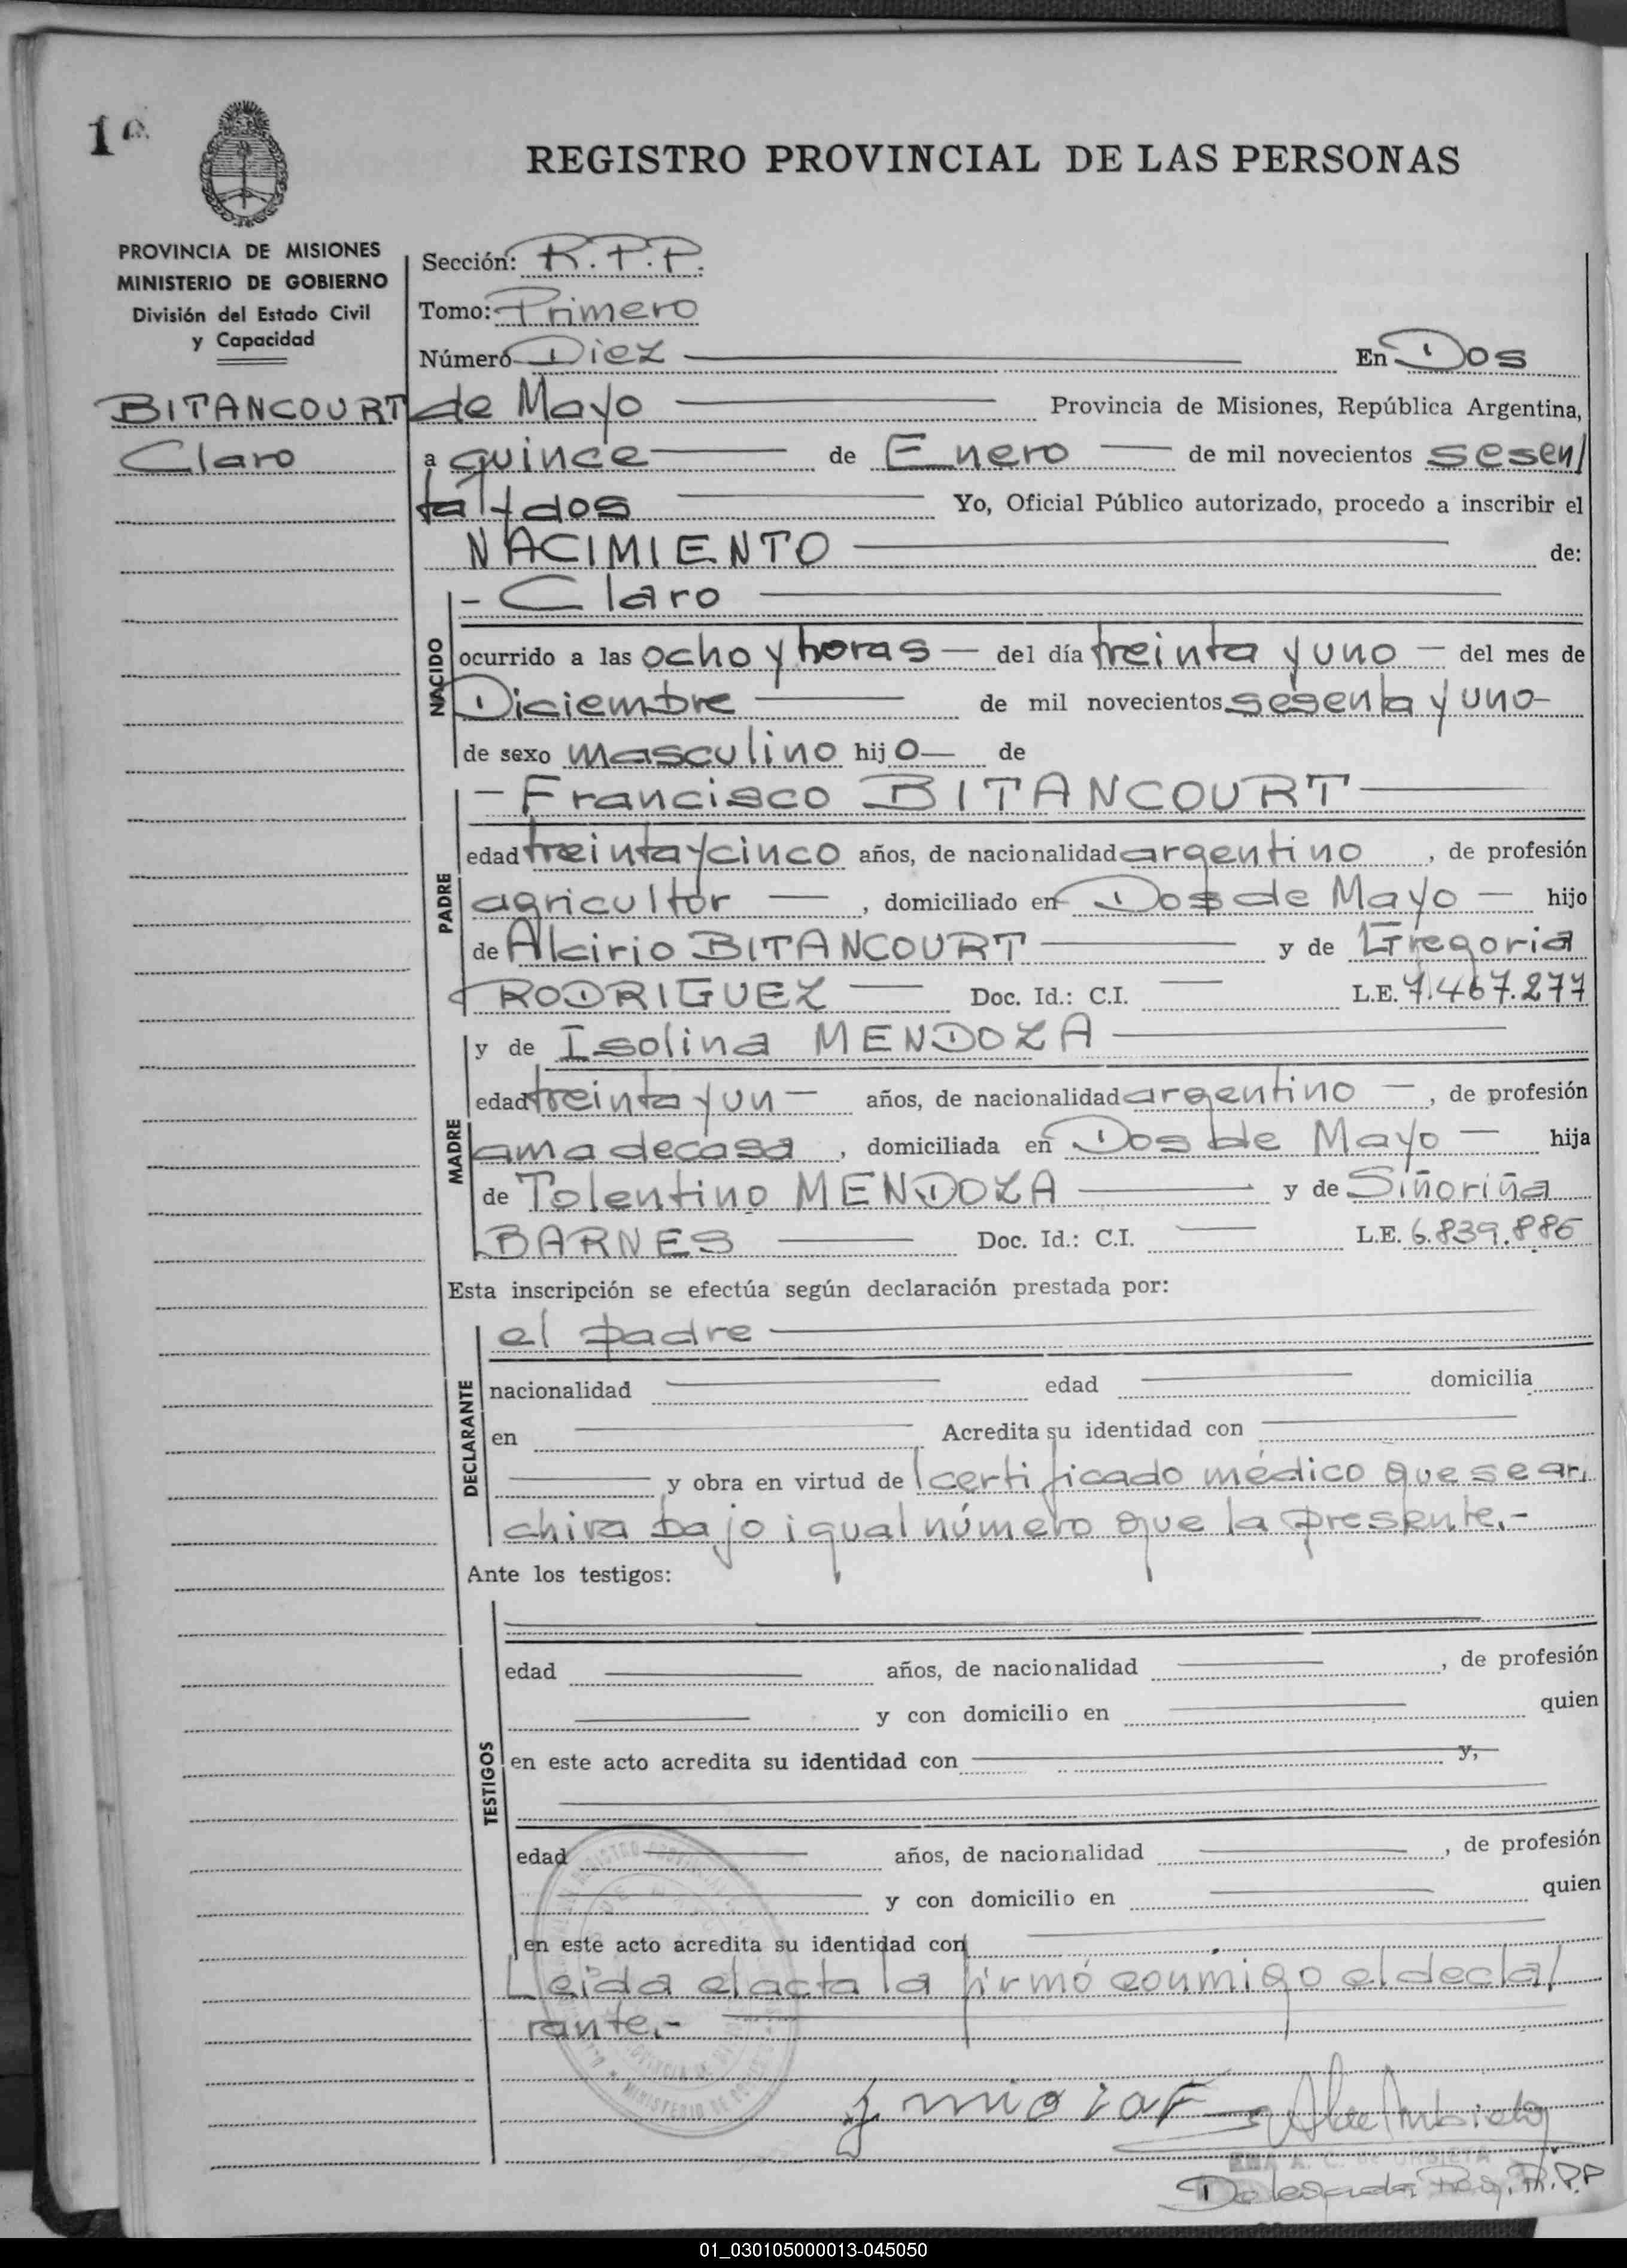 1
REGISTRO PROVINCIAL DE LAS PERSONAS
PROVINCIA DE MISIONES
MINISTERIO DE GOBIERNO
División del Estado Civil
y Capacidad
BITANCOURT
Claro
Sección: R.P.P.
Tomo: Primero
Número Diez En Dos
de Mayo Provincia de Misiones, República Argentina,
a quince de Enero de mil novecientos sesen/
ta y dos Yo, Oficial Público autorizado, procedo a inscribir el
NACIMIENTO de:
NACIDO
- Claro
ocurrido a las ocho y horas del día treinta y uno del mes de
Diciembre de mil novecientos sesenta y uno
de sexo masculino hijo de
PADRE
- Francisco BITANCOURT
edad treinta y cinco años, de nacionalidad argentino, de profesión
agricultor, domiciliado en Dos de Mayo hijo
de Alcirio BITANCOURT y de Gregoria
RODRIGUEZ Doc. Id.: C.I. L.E. 7.467.277
MADRE
y de Isolina MENDOZA
edad treinta y un años, de nacionalidad argentino, de profesión
ama de casa, domiciliada en Dos de Mayo hija
de Tolentino MENDOZA y de Siñoriña
BARNES Doc. Id.: C.I. L.E. 6.839.886
Esta inscripción se efectúa según declaración prestada por:
DECLARANTE
el padre
nacionalidad edad domicilia
en Acredita su identidad con
y obra en virtud de certificado médico que se ar.
chiva bajo igual número que la presente.-
Ante los testigos:
TESTIGOS
edad años, de nacionalidad , de profesión
y con domicilio en quien
en este acto acredita su identidad con y,
edad años, de nacionalidad , de profesión
y con domicilio en quien
en este acto acredita su identidad con
Leida el acta la firmó conmigo el decla/
rante.-
MINISTERIO DE
A. C. de URBIETA
Delegada R.P.P
01_030105000013-045050